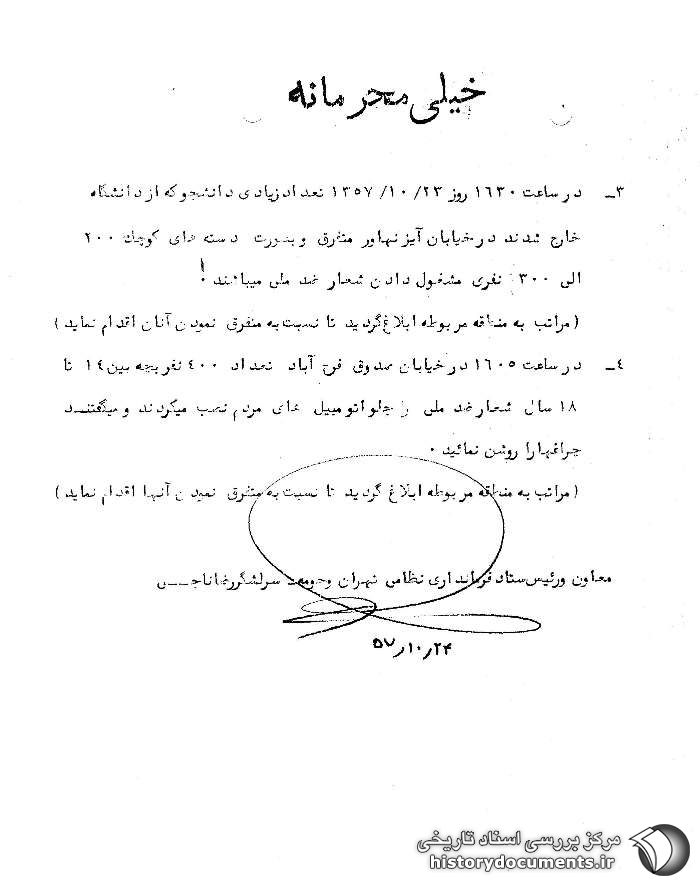 خیلی محرمانه
۳ـ در ساعت ۱۶۳۰ روز ۲۳/ ۱۰/ ۱۳۵۷ تعداد زیادی دانشجو که از دانشگاه
خارج شدند در خیابان آیزنهاور متفرق و بصورت دسته های کوچك ۲۰۰
الی ۳۰۰ نفری مشغول دادن شعار ضد ملی میباشند !
( مراتب به منطقه مربوطه ابلاغ گردید تا نسبت به متفرق نمودن آنان اقدام نماید )
۴ـ در ساعت ۱۶۰۵ در خیابان صدوق فرح آباد تعداد ۴۰۰ نفر بچه بین ۱۴ تا
۱۸ سال شعار ضد ملی را جلو اتومبیل های مردم نصب میکردند و میگفتند
چراغها را روشن نمائید .
( مراتب به منطقه مربوطه ابلاغ گردید تا نسبت به متفرق نمودن آنها اقدام نماید )
معاون و رئیس ستاد فرمانداری نظامی تهران و حومه سرلشگر رضا ناجی
۵۷٫۱۰٫۲۴
مرکز بررسی اسناد تاریخی
historydocuments.ir